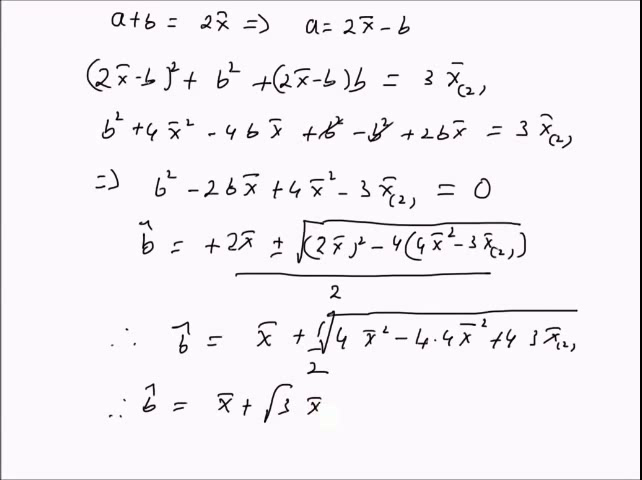 a+b = 2x̄ => a = 2x̄ - b
(2x̄-b)² + b² + (2x̄-b)b = 3 x̄(2),
b² + 4x̄² - 4bx̄ + b² - b² + 2bx̄ = 3 x̄(2),
=> b² - 2bx̄ + 4x̄² - 3x̄(2), = 0
b̂ = +2x̄ ± √((2x̄)² - 4(4x̄² - 3x̄(2),))
2
∴ b̂ = x̄ + 1/2 √(4x̄² - 4·4x̄² + 4 3x̄(2),
∴ b̂ = x̄ + √3 x̄